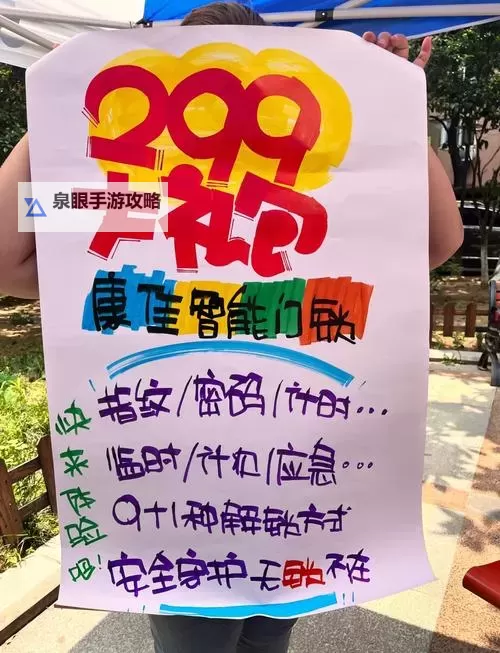 299
大礼包
泉眼手游攻略
康佳智能门锁
指纹/密码/计时...
临时/计划/应急...
9+1种解锁方式
安全守护无锁不在
快来体验吧!